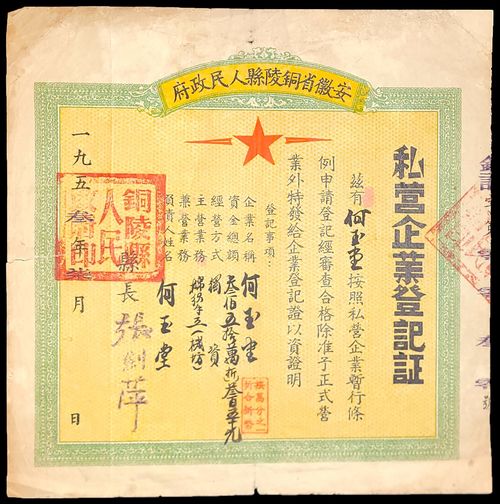 安徽省銅陵縣人民政府
私营企業登記証
茲有何玉堂按照私營企業暫行條
例申請登記經審查合格除准予正式營
業外特發給企業登記證以資證明
登記事項:
企業名稱 何玉堂
資金總額 叁佰五拾萬折叁百五十元
經營方式 獨資
主營業務
兼營業務
負責人姓名 何玉堂
按萬分之一
折合新幣
縣長 張劍萍
一九五叁年 月 日
銅陵縣人民